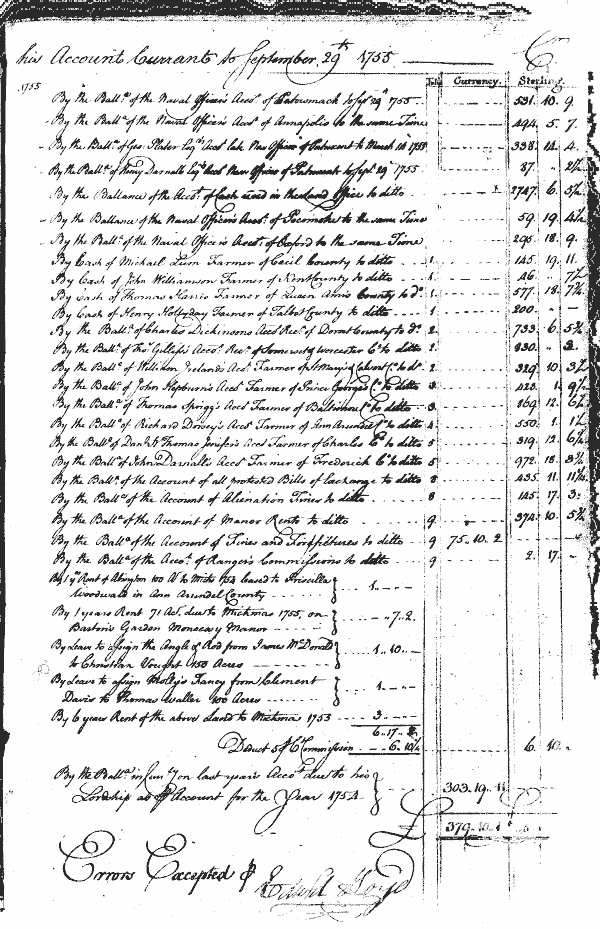 his Account Currant to September 29th 1755
fo. Currency. Sterling
1755
By the Balla. of the Naval Officer's Acct. of Patuxmack to Sepr 29th 1755 531. 10. 9
By the Balla. of the Naval Officer's Acct. of Annapolis to the same Time 494. 5. 7
By the Balla. of Geo. Plater Esqrs Acct. late Navl Officer of Patuxent to March 1755 338. 14. 4
By the Balla. of Henry Darnall Esqrs Acct Navl Officer of Patuxmack to Sepr. 29th 1755 87. " 2½
By the Ballance of the Acct. of Cash in the Land Office to ditto 2727. 6. 5½
By the Ballance of the Naval Officer's Acct. of Pocomoke to the same Time 59 19. 4½
By the Balla. of the Naval Officer's Acct. of Oxford to the same Time 296 18. 9
By Cash of Michael Farmer of Cecil County to ditto 1 145. 19. 11
By Cash of John Williamson Farmer of Kent County to ditto 1 46 " 7½
By Cash of Thomas Harris Farmer of Queen Anns County to do. 1 577. 18. 7½
By Cash of Henry Hollyday Farmer of Talbot County to ditto 1 200. — —
By the Balla. of Charles Dickinson's Acct Recr. of Dorset County to do. 2 733. 6. 5¾
By the Balla. of Gilliss's Acct. Recr. of Somerset & Worcester Cs. to ditto 2 930. " 2
By the Balla. of William Ireland's Acct. Farmer of St Marys & Calvert Cs. to do. 2 329. 10
By the Balla. of John Hepburn's Acct Farmer of Prince Georges C. to ditto 3 423. 1
By the Balla. of Thomas Sprigg's Acct Farmer of Baltimore C. to ditto 3 269 12.
By the Balla. of Richard Dorsey's Acct Farmer of Ann Arundel C. to ditto 4 550. 1
By the Balla. of Danl. of St Thomas Jenifer's Acct Farmer of Charles C. to ditto 5 319. 12
By the Balla. of John Darnall's Acct Farmer of Frederick C. to ditto 5 972. 18
By the Balla. of the Account of all protested Bills of Exchange to ditto 8 435. 11
By the Balla. of the Account of Alienation Fines to ditto 8 145. 17. 3
By the Balla. of the Account of Manor Rents to ditto 9 374. 10. 5½
By the Balla. of the Account of Fines and Forfeitures to ditto 9 75. 10. 2
By the Balla. of the Acct. of Ranger's Commissions to ditto 9 2. 17. —
By 1 yrs Rent of 100 As to leased to Priscilla
Woodward in Ann Arundel County 1. — —
By 1 years Rent 71 As. due to Michmas 1755, on
Barton's Garden Monocacy Manor " 7. 2
By Leave to assign the Angle & Rod from James McDonald
to Christian Vought 150 Acres 1. 10 —
By Leave to assign Molly's Fancy from Clement
Davis to Thomas Waller 100 Acres 1 — —
By 6 years Rent of the above Land to Michmas 1753 3. — —
6. 17. 2
Deduct 5 ⅌ Ct Commission 6. 10½ 6. 10.
By the Balla. in on last year's Acct. due to his
Lordship as ⅌ Account for the Year 1754 303. 19. 11
£ 379. 10. 1
Errors Excepted ⅌
Edwd Lloyd